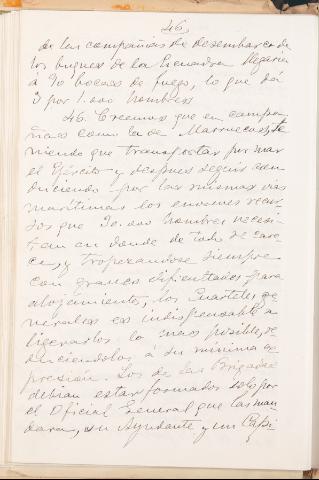 46,
de las compañias de desembarco de
los buques de la Escuadra llegarian
á 90 bocas de fuego, lo que dá
3 por 1.000 hombres
46. Creemos que en campa
ñas como la de Marruecos, te
niendo que transportar por mar
el Ejército y despues seguir con
duciendo por las mismas vias
maritimas los enormes recur
sos que 30.000 hombres necesi
tan en donde de todo se care
ce, y tropezandose siempre
con graves dificultades para
alojamientos, los Cuarteles ge
nerales es indispensable a
ligerarlos lo mas posible, re
duciendolos á su minima ex
presión. Los de las Brigadas
debian estar formados solo por
el Oficial General que las man
dara, su Ayudante y un Capi